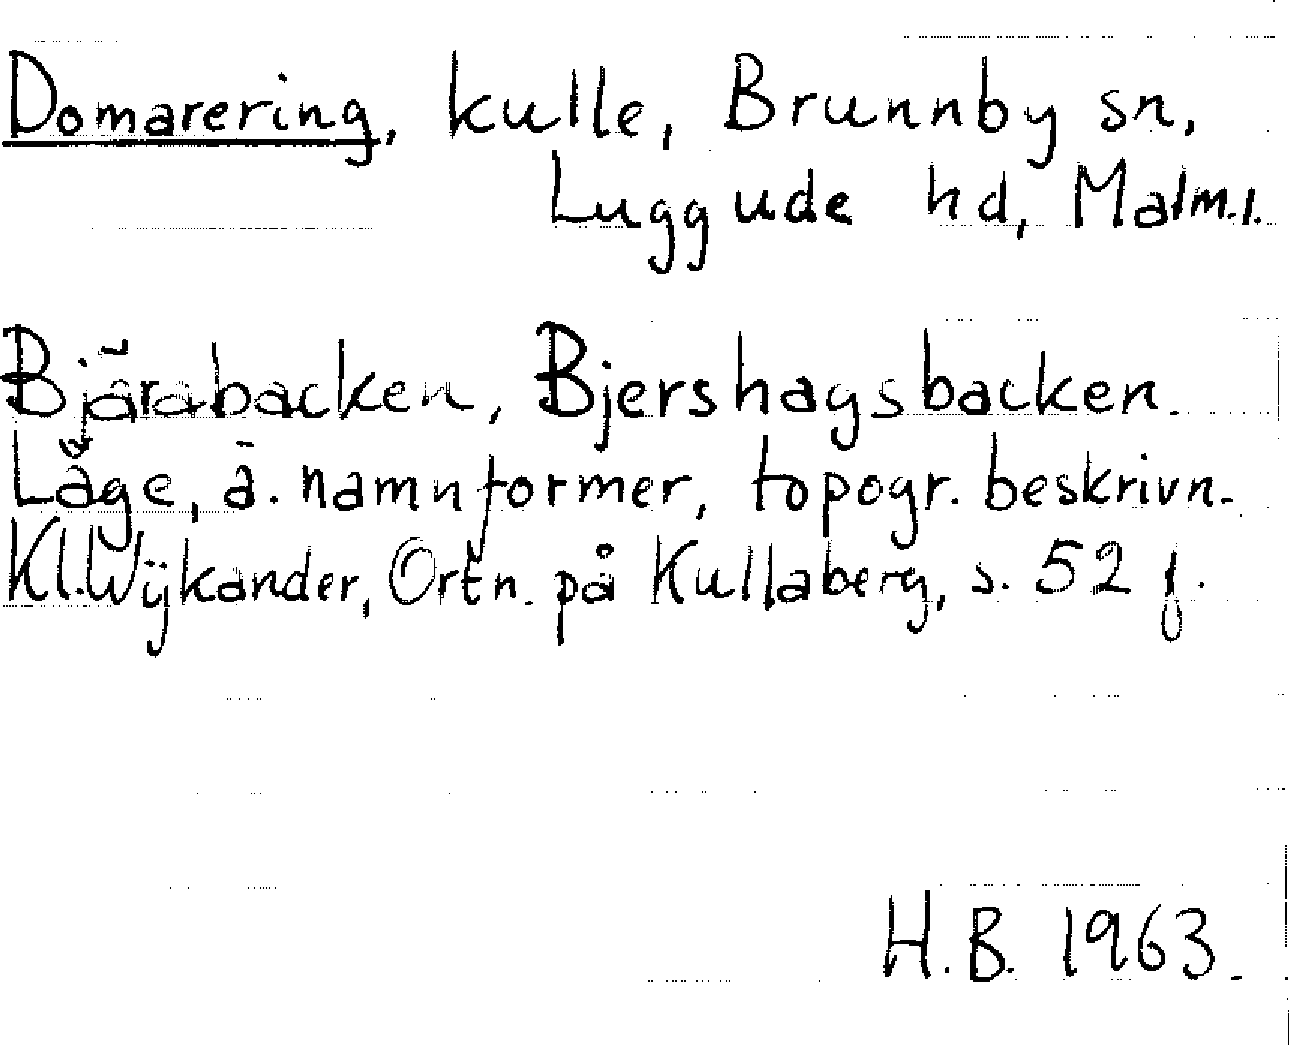 Domarering, kulle, Brunnby sn,
Luggude hd, Malm.l.
Bjärabacken, Bjershagsbacken.
Läge, ä. namnformer, topogr. beskrivn.
Kl. Wijkander, Ortn. på Kullaberg, s. 52 f.
H.B. 1963.